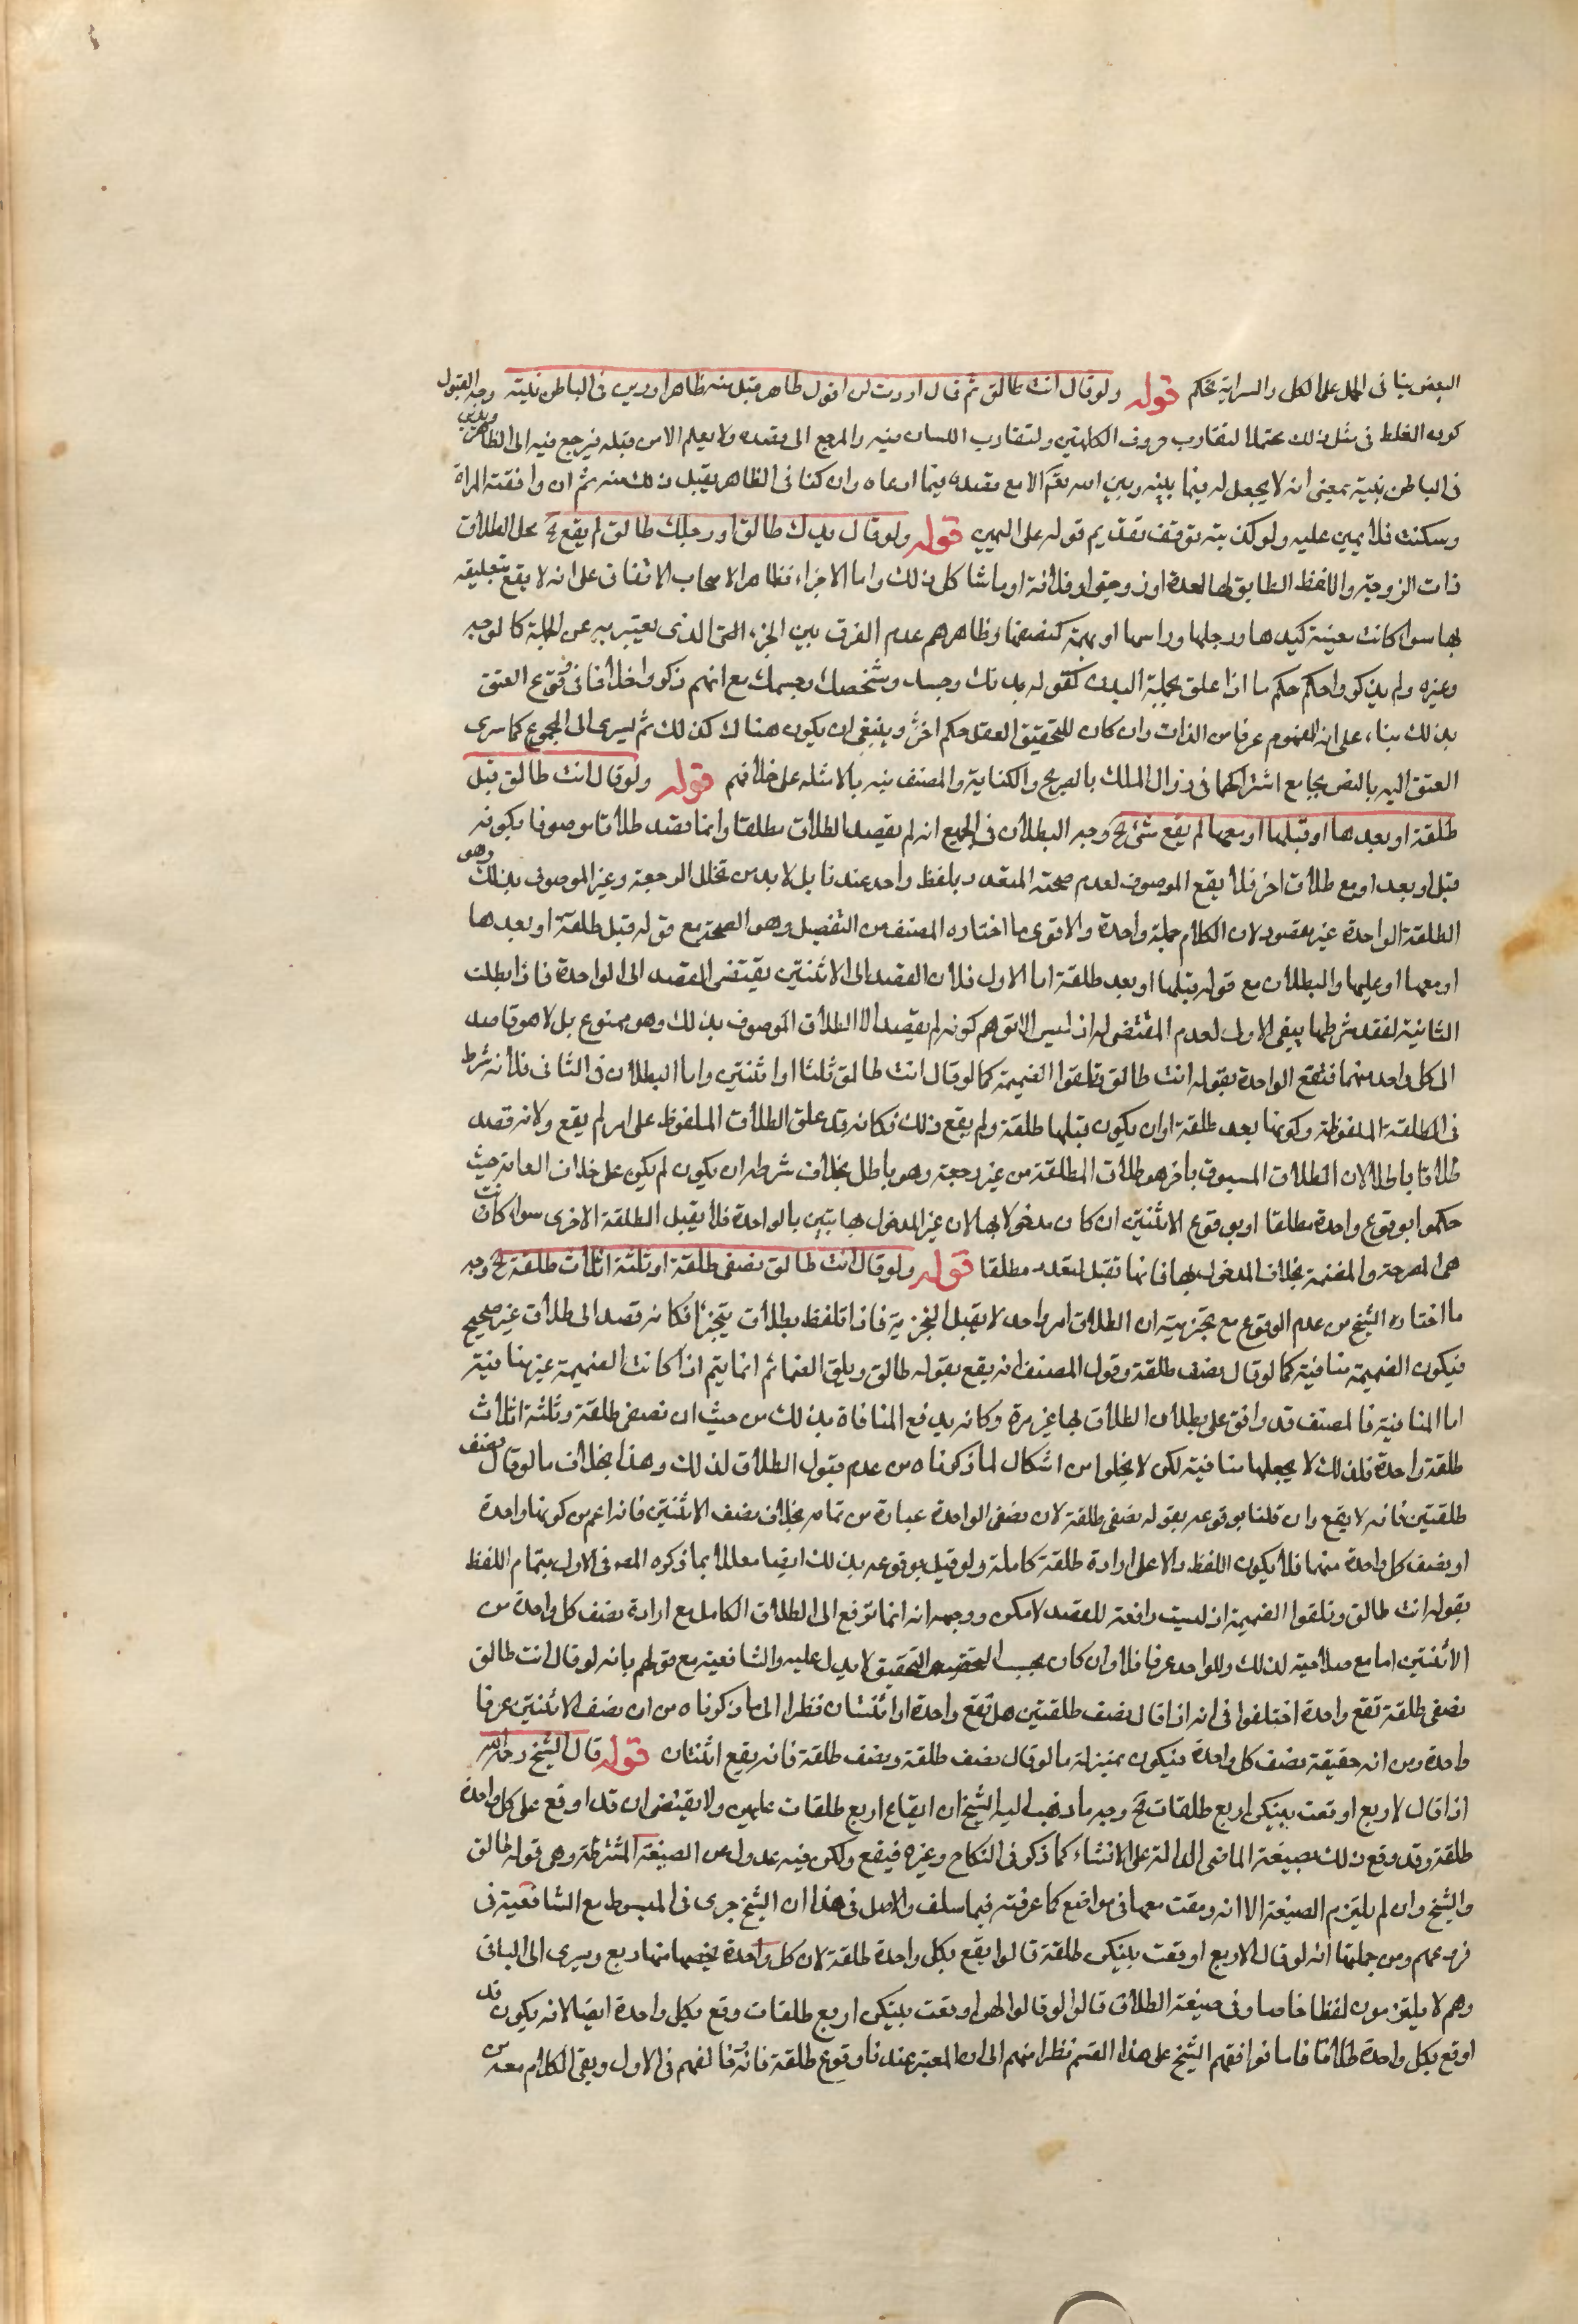 البعض ينافى الحمل على الكل والسراية تحكم قوله ولو قال انت طالق ثم قال اردت ان اقول طاهر قبل منه ظاهرا ودين فى الباطن بنيته وجه القبول
كون الغلط فى مثل ذلك محتملا لتقارب حروف الكلمتين ولتقارب اللسان فيه والمرجع الى قصده ولا يعلم الا من قبله فيرجع فيه الى الظاهر ويدين
فى الباطن بنيته بمعنى انه لا يجعل له فيما بينه وبين الله تعم الا مع قصده فيما ادعاه وان كنا فى الظاهر يقبل ذلك منه ثم ان وافقته المراة
وسكتت فلا يمين عليه ولو كذبته توقف تقديم قوله على اليمين قوله ولو قال يدك طالق او رجلك طالق لم يقع الخ محل الطلاق
ذات الزوجة واللفظ المطابق لها لعدة او زوجتى او فلانة او ما شاكل ذلك واما الاجزاء فظاهر الاصحاب الاتفاق على انه لا يقع بتعليقه
بها سواء كانت معينة كيدها ورجلها وراسها او مبهمة كنصفها وظاهرهم عدم الفرق بين الجزء التى الذى يعتبر به عن الجملة كالوجه
وغيره ولم يذكروا حكم حكم ما اذا علق بجملة البدن كقوله بدنك وجسدك وشخصك وجسمك مع انهم ذكروا خلافا فى وقوع العتق
بذلك بناء على انه المفهوم عرفا من الذات وان كان للتحقيق العقلى حكم اخر وينبغى ان يكون هناك كذلك ثم ليسرى الى المجموع كما سرى
العتق اليه بالنص بجامع اشتراكهما فى زوال الملك بالصريح والكناية والمصنف نبه بالامثلة على خلافهم قوله ولو قال انت طالق قبل
طلقة او بعدها او قبلها او معها لم يقع شئ الخ وجه البطلان فى الجميع انه لم يقصد الطلاق مطلقا وانما قصد طلاقا موصوفا بكونه
قبل او بعد او مع طلاق اخر فلا يقع الموصوف لعدم صحته المتعدد بلفظ واحد عندنا بل لا بد من تخلل الرجعة وغير الموصوف بذلك وهو
الطلقة الواحدة غير مقصود لان الكلام جملة واحدة والاقوى ما اختاره المصنف من التفصيل وهو الصحة مع قوله قبل طلقة او بعدها
او معها او عليها والبطلان مع قوله قبلها او بعد طلقة اما الاول فلان القصد الى الاثنتين يقتضى القصد الى الواحدة فاذا بطلت
الثانية لفقد شرطها يبقى الاول لعدم المقتضى له اذ ليس الا توهم كونه لم يقصد الا الطلاق الموصوف بذلك وهو ممنوع بل لا هو قاصد
الى كل واحد منهما فتقع الواحدة بقوله انت طالق وتلغوا الضميمة كما لو قال انت طالق ثلثا او اثنتين واما البطلان فى الثانى فلانه شرط
فى الطلقة الملفوظة كونها بعد طلقة او ان يكون قبلها طلقة ولم يقع ذلك فكانه قد علق الطلاق الملفوظ على امر لم يقع ولانه قصد
طلاقا باطلا لان الطلاق المسبوق باخر هو طلاق المطلقة من غير رجعة وهو باطل بخلاف شرط ان يكون لم يكن على خلاف العامة حيث
حكموا بوقوع واحدة مطلقا او بوقوع الاثنتين ان كان مدخولا بها لان غير المدخول بها تبين بالواحدة فلا يقبل الطلقة الاخرى سواء كانت
هى المصرحة والمضمنة بخلاف المدخول بها فانها تقبل التعدد مطلقا قوله ولو قال انت طالق نصفى طلقة او ثلثة اثلاث طلقة الخ وجه
ما اختاره الشيخ من عدم الوقوع مع تجزيته ان الطلاق امر واحد لا يقبل التجزية فاذا تلفظ بطلاق يتجزا فكانه قصد الى طلاق غير صحيح
فيكون الضميمة منافية كما لو قال نصف طلقة وقول المصنف انه يقع بقوله طالق ويلغى الضمائم انما يتم اذا كانت الضميمة غير منافية
اما المنافية فالمصنف قد وافق على بطلان الطلاق بها غير مرة وكانه يدفع المنافاة بذلك من حيث ان نصفى طلقة وثلثة اثلاث
طلقة واحدة فلذلك لا يجعلها منافية لكن لا يخلوا من اشكال لما ذكرناه من عدم قبول الطلاق لذلك وهذا بخلاف ما لو قال نصف
طلقتين فانه لا يقع وان قلنا بوقوعه بقوله نصفى طلقة لان نصفى الواحدة عبارة من تمامه بخلاف نصف الاثنتين فانه اعم من كونها واحدة
او نصف كل واحدة منهما فلا يكون اللفظ دالا على ارادة طلقة كاملة ولو قيل بوقوعه بذلك ايضا معللا بما ذكره المص فى الاول بتمام اللفظ
بقوله انت طالق وتلغوا الضميمة اذ ليست رافعة للقصد لامكن ووجهه انه انما ترفع الى الطلاق الكامل مع ارادة نصف كل واحدة من
الاثنتين اما مع صلاحيته لذلك وللواحد عرفا فلا وان كان بحسب التحقيق لا يدل عليه والشافعية مع قولهم بانه لو قال انت طالق
نصفى طلقة تقع واحدة اختلفوا فى انه اذا قال نصف طلقتين هل تقع واحدة او اثنتان نظرا الى ما ذكرناه من ان نصف الاثنتين عرفا
واحدة ومن انه حقيقة نصف كل واحدة فيكون بمنزلة ما لو قال نصف طلقة ونصف طلقة فانه يقع اثنتان قوله قال الشيخ رحمه الله
اذا قال لاربع اوقعت بينكن اربع طلقات الخ وجه ما ذهب اليه الشيخ ان ايقاع اربع طلقات عليهن ولا يقتضى ان قد اوقع على كل واحدة
طلقة وقد وقع ذلك بصيغة الماضى الدالة على الانشاء كما ذكر فى النكاح وغيره فيقع ولكن فيه عدول عن الصيغة المشترطة وهى قوله طالق
والشيخ وان لم يلتزم الصيغة الا انه وقعت معها فى مواضع كما عرفته فيما سلف والاصل فى هذا ان الشيخ جرى فى المبسوط مع الشافعية فى
فروعهم ومن جملتها انه لو قال لاربع اوقعت بينكن طلقة قالوا يقع بكل واحدة طلقة لان كل واحدة يخصها منها ربع ويسرى الى الباقى
وهم لا يلتزمون لفظا خاصا وفى صيغة الطلاق قالوا لو قالوا لهن اوقعت بينكن اربع طلقات وقع بكل واحدة ايضا لانه يكون قد
اوقع بكل واحدة طلاقا خاصا فوافقهم الشيخ على هذا القسم نظرا منهم الى ان المعتبر عندنا وقوع طلقة فانه وخالفهم فى الاول وبقى الكلام معه من